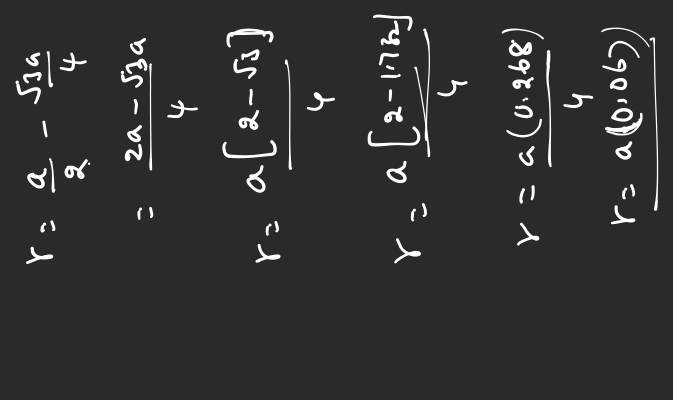 r = a/2 - √3a/4
= 2a-√3a/4
r = a[2-√3]/4
r = a[2-1.732]/4
r = a(0.268)/4
r = a(0.06)